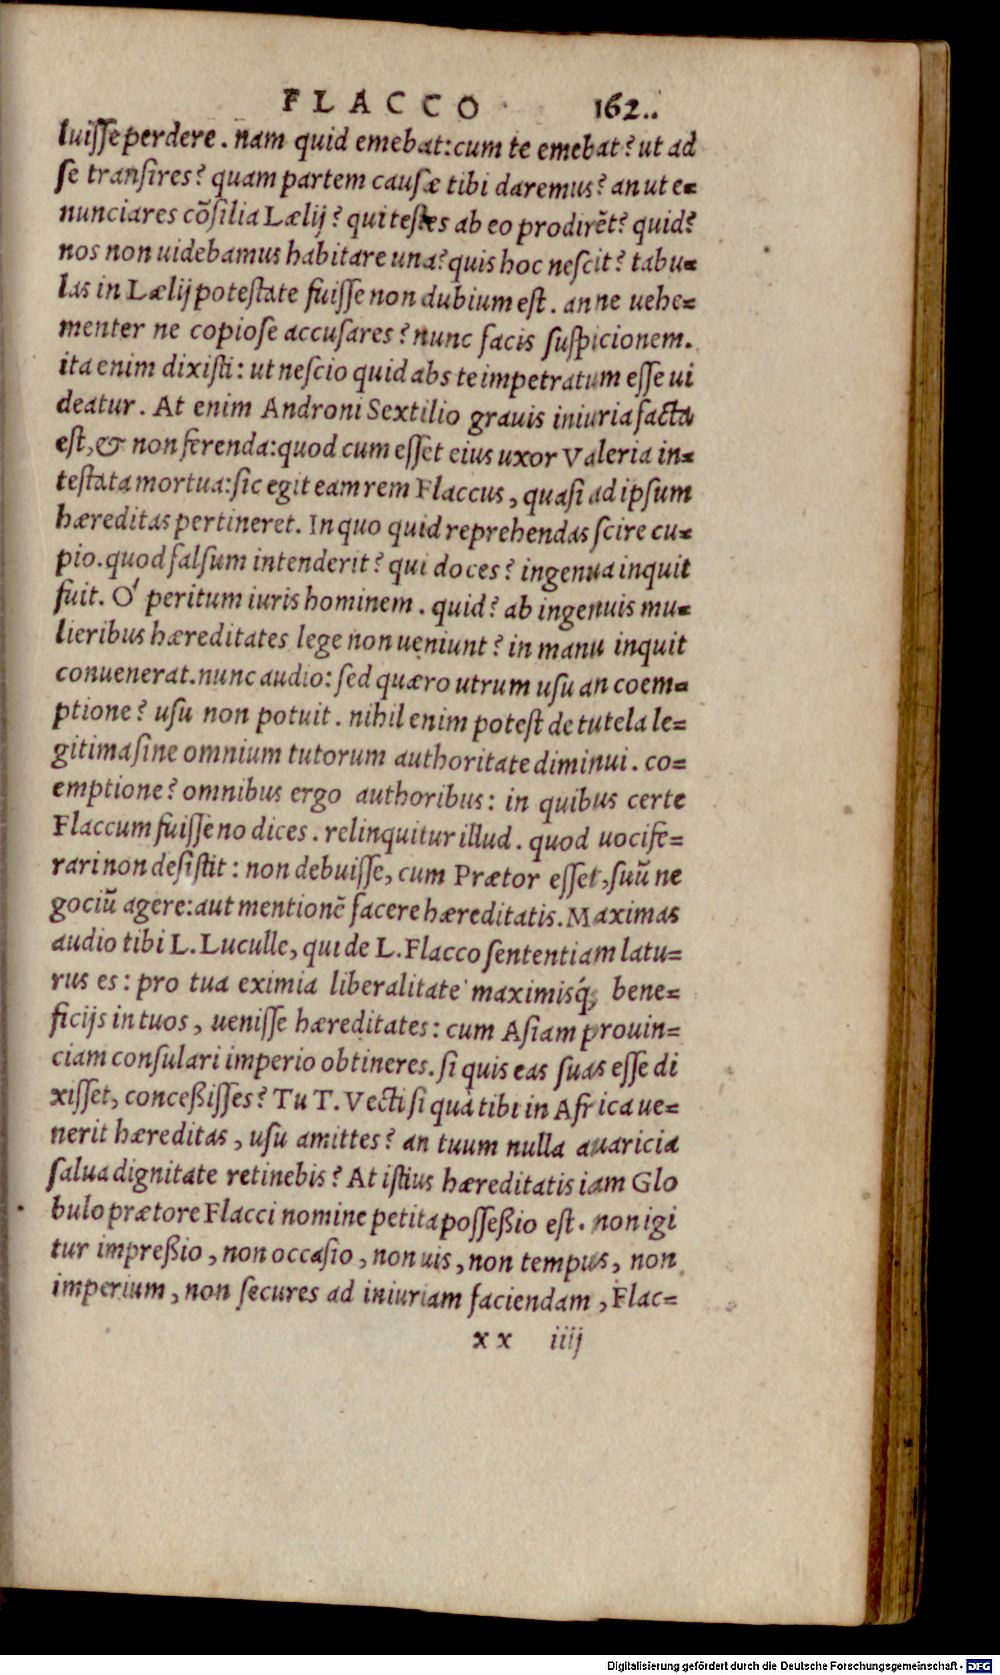 FLACCO 162..
luiſſe perdere. nam quid emebat: cum te emebat? ut ad
ſe tranſires? quam partem cauſæ tibi daremus? an ut e=
nunciares cōſilia Lælij? qui teſtes ab eo prodirēt? quid?
nos non uidebamus habitare una? quis hoc neſcit? tabu=
las in Lælij poteſtate fuiſſe non dubium eſt. an ne uehe=
menter ne copioſe accuſares? nunc facis ſuſpicionem.
ita enim dixiſti: ut neſcio quid abs te impetratum eſſe ui
deatur. At enim Androni Sextilio grauis iniuria facta
eſt, & non ferenda: quod cum eſſet eius uxor Valeria in=
teſtata mortua: ſic egit eam rem Flaccus, quaſi ad ipſum
hæreditas pertineret. In quo quid reprehendas ſcire cu=
pio. quod falſum intenderit? qui doces? ingenua inquit
fuit. O' peritum iuris hominem. quid? ab ingenuis mu=
lieribus hæreditates lege non ueniunt? in manu inquit
conuenerat. nunc audio: ſed quæro utrum uſu an coem=
ptione? uſu non potuit. nihil enim poteſt de tutela le=
gitima ſine omnium tutorum authoritate diminui. co=
emptione? omnibus ergo authoribus: in quibus certe
Flaccum fuiſſe no dices. relinquitur illud. quod uocife=
rari non deſiſtit: non debuiſſe, cum Prætor eſſet, ſuū ne
gociū agere: aut mentionē facere hæreditatis. Maximas
audio tibi L. Luculle, qui de L. Flacco ſententiam latu=
rus es: pro tua eximia liberalitate maximisq́; bene=
ficijs in tuos, ueniſſe hæreditates: cum Aſiam prouin=
ciam conſulari imperio obtineres. ſi quis eas ſuas eſſe di
xiſſet, conceßiſſes? Tu T. Vecti ſi qua tibi in Africa ue=
nerit hæreditas, uſu amittes? an tuum nulla auaricia
ſalua dignitate retinebis? At iſtius hæreditatis iam Glo
bulo prætore Flacci nomine petita poſſeßio eſt. non igi
tur impreßio, non occaſio, non uis, non tempus, non
imperium, non ſecures ad iniuriam faciendam, Flac=
xx iiij
Digitalisierung gefördert durch die Deutsche Forschungsgemeinschaft - DFG